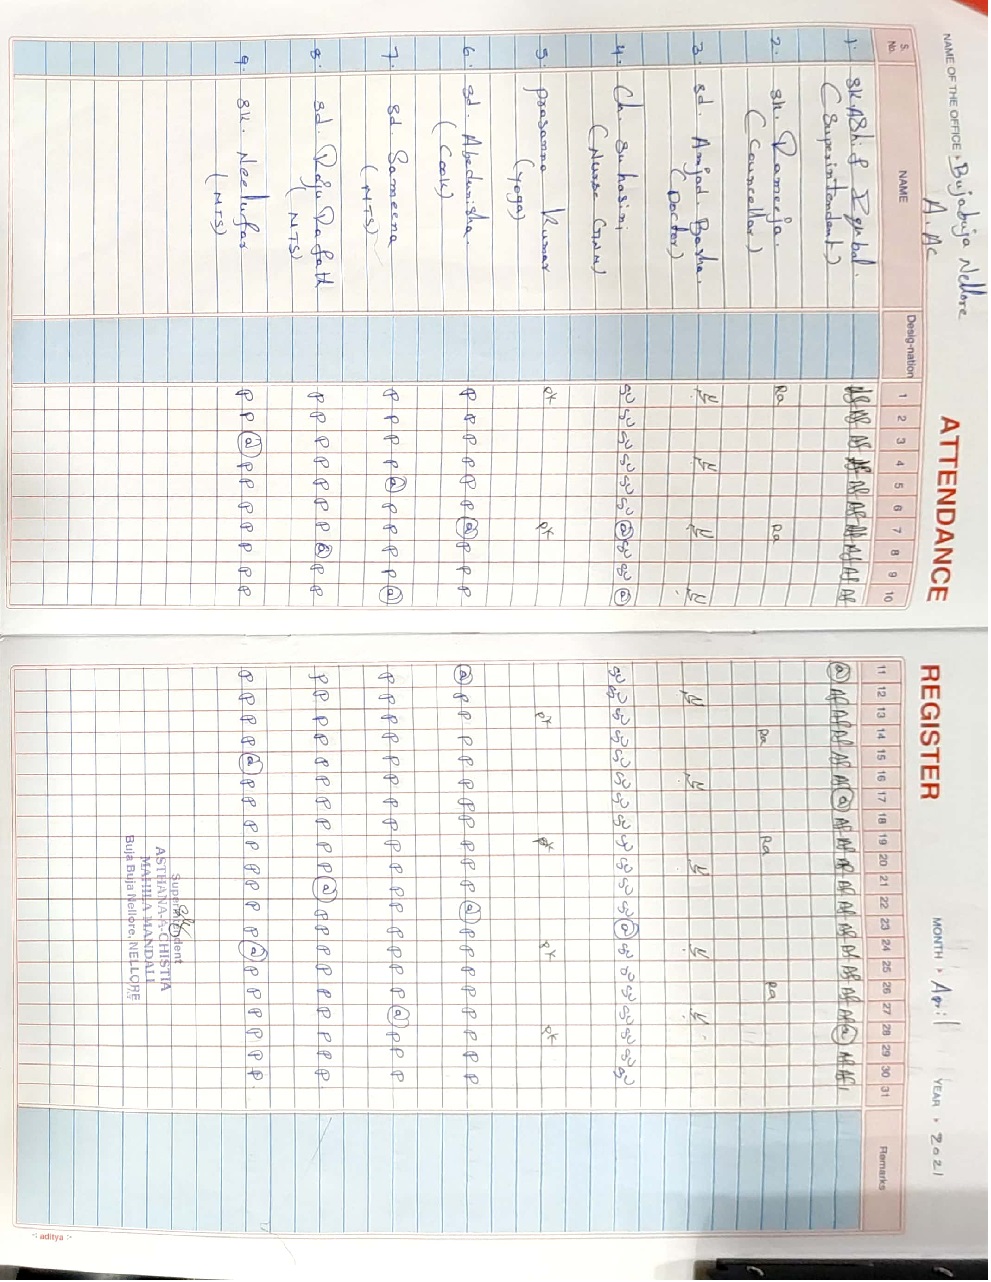 ATTENDANCE REGISTER
NAME OF THE OFFICE Bujabuja Nellore MONTH April YEAR 2021
A.AC
S. No. NAME Desig-nation 1 2 3 4 5 6 7 8 9 10 11 12 13 14 15 16 17 18 19 20 21 22 23 24 25 26 27 28 29 30 31 Remarks
1. SK. Ashif Iqubal.
(Superintendent)
2. Sk. Rameeja. Ra Ra Ra Ra Ra
(Councellar)
3. Sd. Amjad. Basha.
(Doctor)
4. Ch. Suhasini
(Nurse GNM)
5. Prasanna Kumar PK PK PK PK PK PK
(Yoga)
6. Sd. Abedunisha. P P P P P P (a) P P P (a) P P P P P P P P P P (a) P P P P P P P P
(Cook)
7. Sd. Sameena P P P P (a) P P P P (a) P P P P P P P P P P P P P P P P (a) P P P
(MTS)
8. Sd. P P P P P P P (a) P P P P P P P P P P P P (a) P P P P P P P P P
(MTS)
9. SK. Neelufar P P (a) P P P P P P P P P P P (a) P P P P P P P P (a) P P P P P P
(MTS)
Superintendent
ASTHANA-A-CHISTIA
MAHILA MANDALI
Buja Buja Nellore, NELLORE
aditya